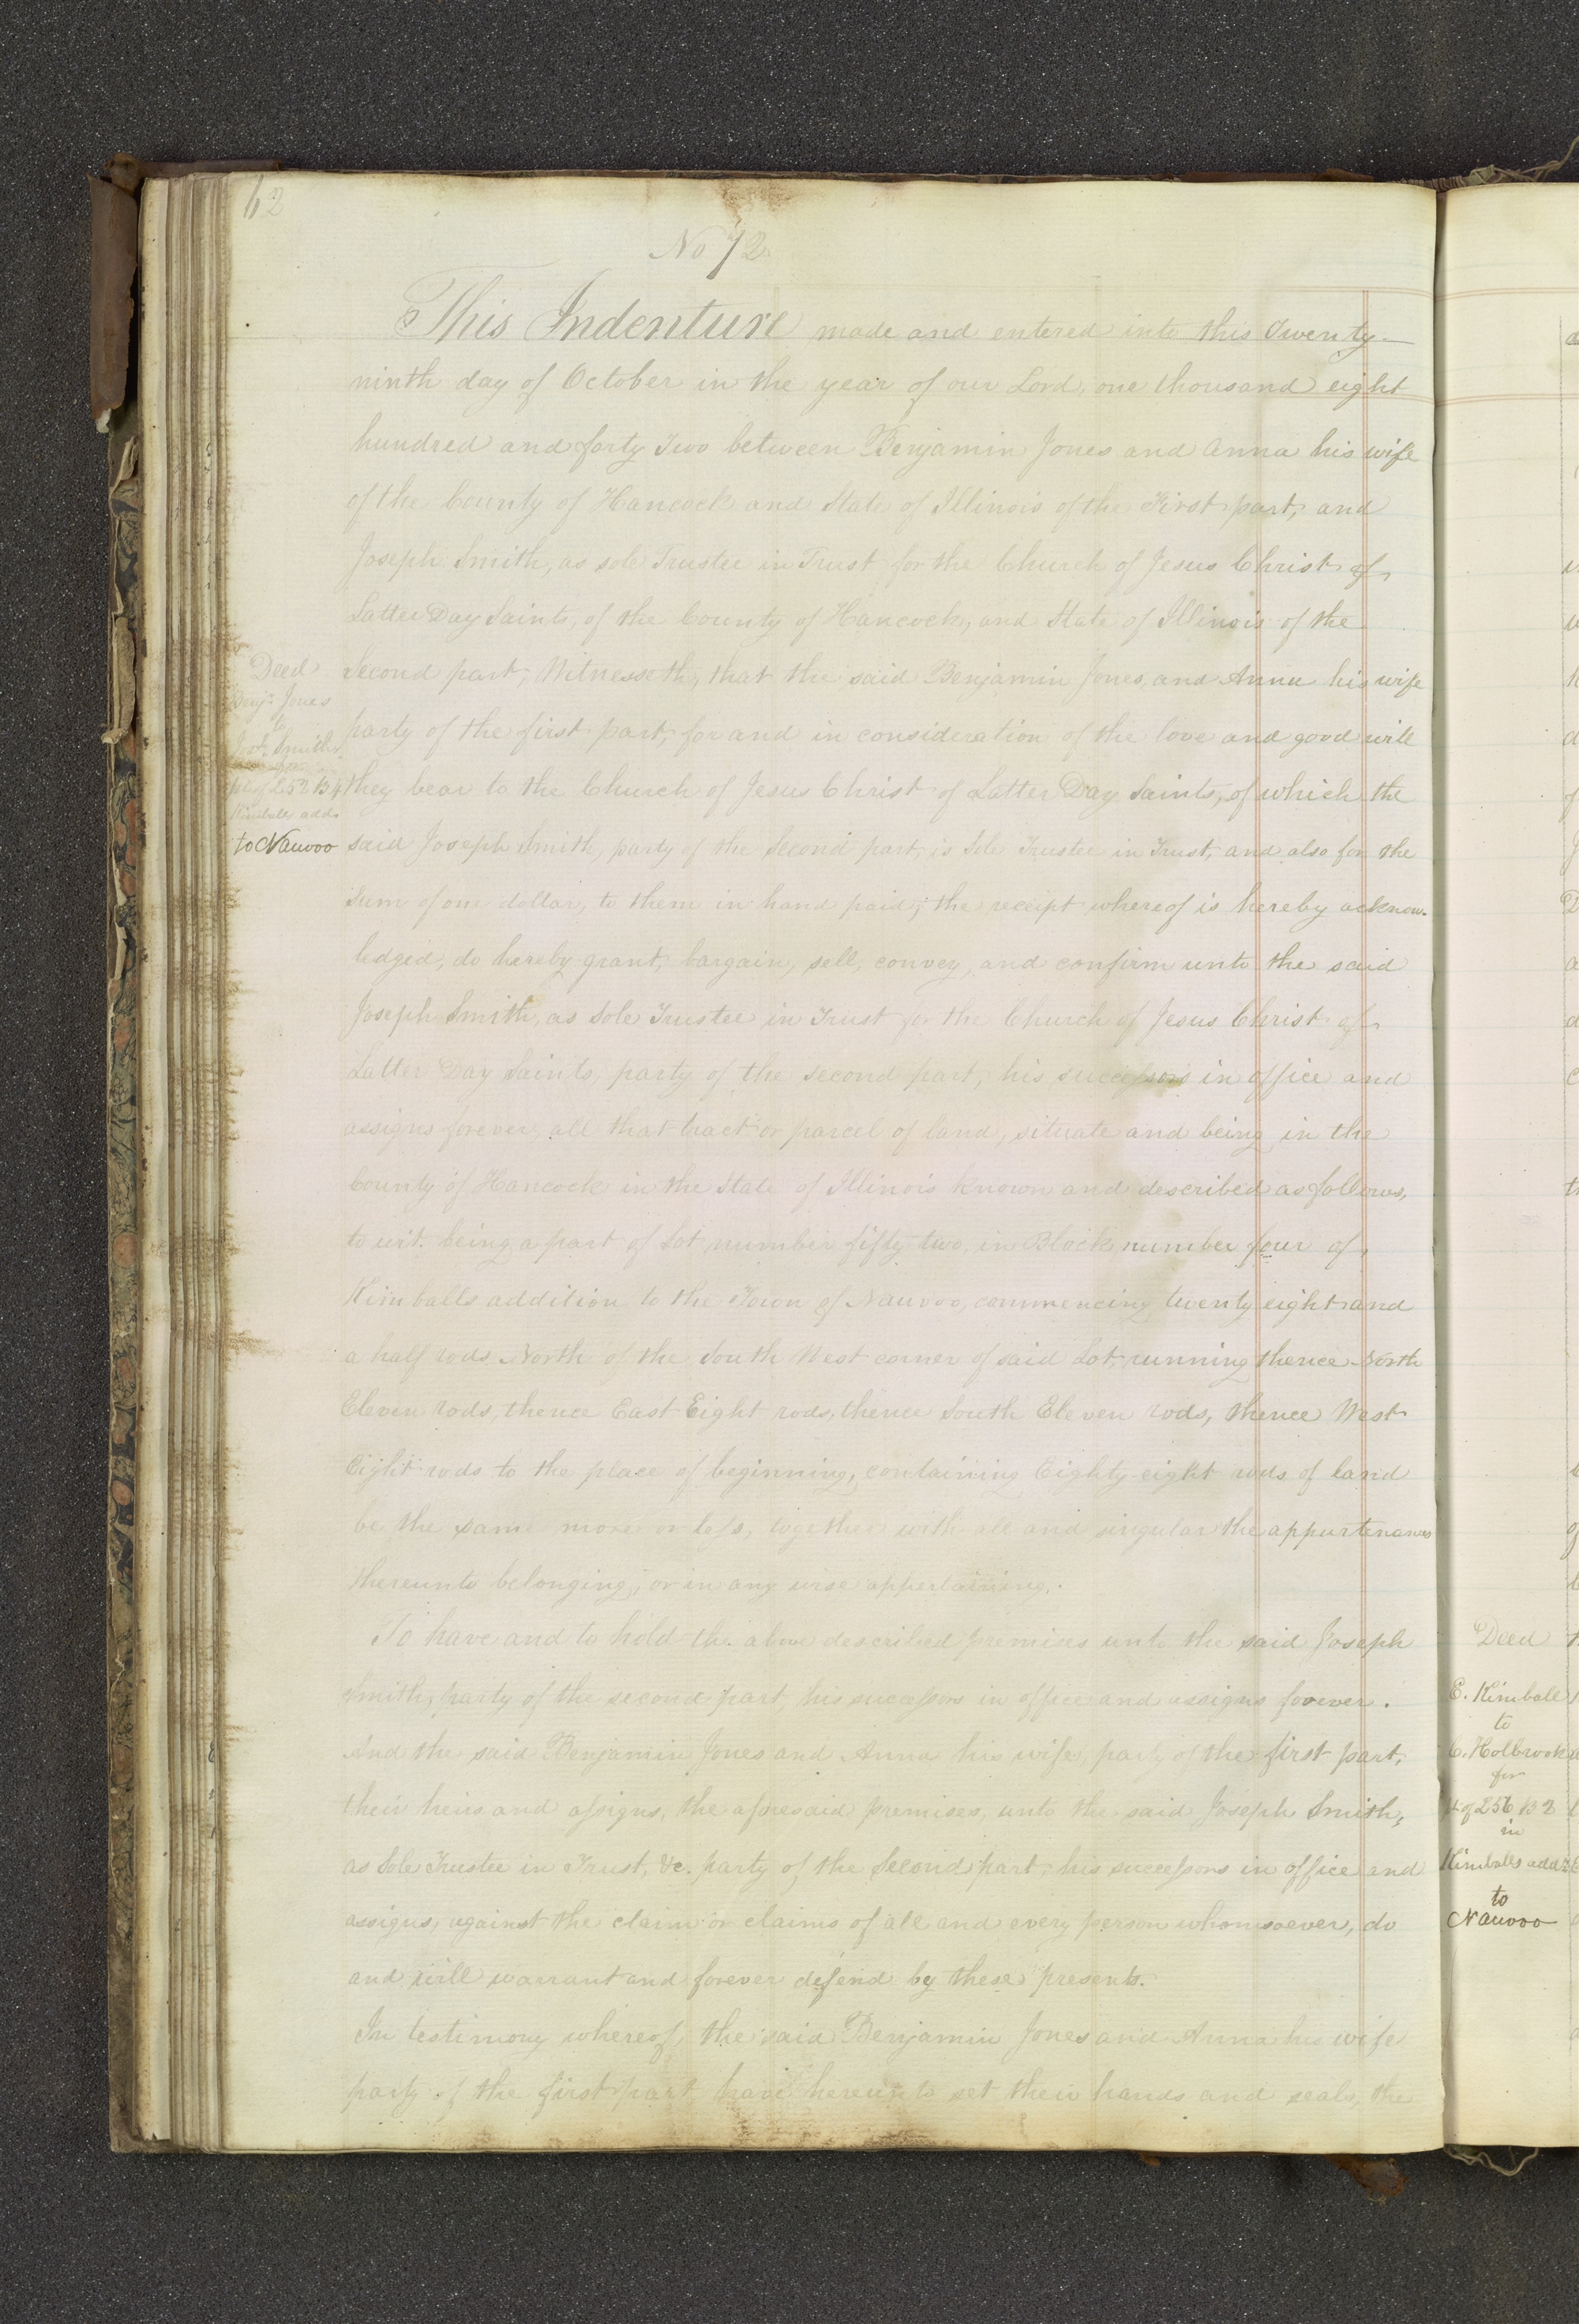 62
No 72
This Indenture made and entered into this Twenty-
ninth day of October in the year of our Lord, one thousand eight
hundred and forty Two between Benjamin Jones and Anna his wife
of the County of Hancock and State of Illinois of the First part, and
Joseph Smith, as sole Trustee in Trust for the Church of Jesus Christ of
Latter Day Saints, of the County of Hancock, and State of Illinois of the
Second part, Witnesseth, that the said Benjamin Jones, and Anna his wife
party of the first part, for and in consideration of the love and good will
they bear to the Church of Jesus Christ of Latter Day Saints, of which the
said Joseph Smith, party of the Second part, is Sole Trustee in Trust, and also for the
Sum of one dollar, to them in hand paid; the receipt whereof is hereby acknow-
ledged, do hereby grant, bargain, sell, convey, and confirm unto the said
Joseph Smith, as Sole Trustee in Trust for the Church of Jesus Christ of
Latter Day Saints, party of the second part, his successors in office and
assigns forever, all that tract or parcel of land, situate and being in the
County of Hancock in the State of Illinois known and described as follows,
to wit. being a part of Lot number fifty two, in Block number four of
Kimballs addition to the Town of Nauvoo, commencing twenty eight and
a half rods North of the South West corner of said Lot, running thence North
Eleven rods, thence East Eight rods, thence South Eleven rods, thence West
Eight rods to the place of beginning, containing Eighty-eight rods of land
be the same more or less, together with all and singular the appurtenances
thereunto belonging, or in any wise appertaining.
To have and to hold the above described premises unto the said Joseph
Smith, party of the second part, his successors in office and assigns forever.
And the said Benjamin Jones and Anna his wife, party of the first part,
their heirs and assigns, the aforesaid premises, unto the said Joseph Smith,
as Sole Trustee in Trust, &c. party of the Second part, his successors in office and
assigns, against the claim or claims of all and every person whomsoever, do
and will warrant and forever defend by these presents.
In testimony whereof, the said Benjamin Jones and Anna his wife
party of the first part have hereunto set their hands and seals, the
Deed
Benjn Jones
to
Josh Smith
for
pt of L 52 B 4
Kimballs addn
to Nauvoo
Deed
E. Kimball
to
C. Holbrook
for
4 of 256 B 2
in
Kimballs addn
to
Nauvoo